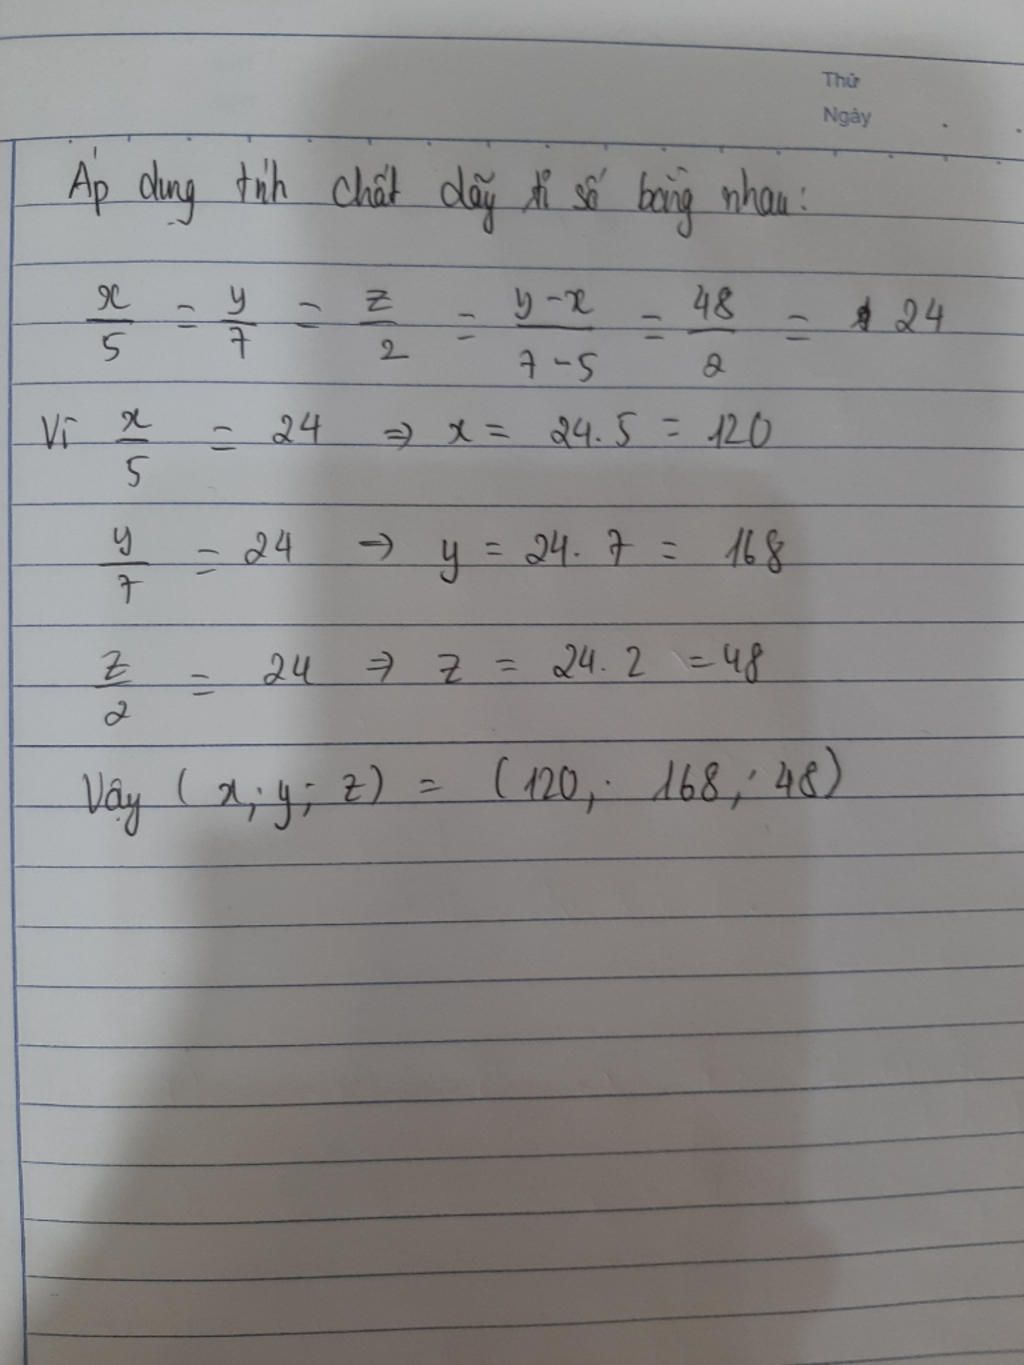 Thứ
Ngày
Áp dụng tính chất dãy tỉ số bằng nhau:
x/5 = y/7 = z/2 = y-x/7-5 = 48/2 = 24
Vì x/5 = 24 => x = 24.5 = 120
y/7 = 24 => y = 24.7 = 168
z/2 = 24 => z = 24.2 = 48
Vậy (x; y; z) = (120; 168; 48)